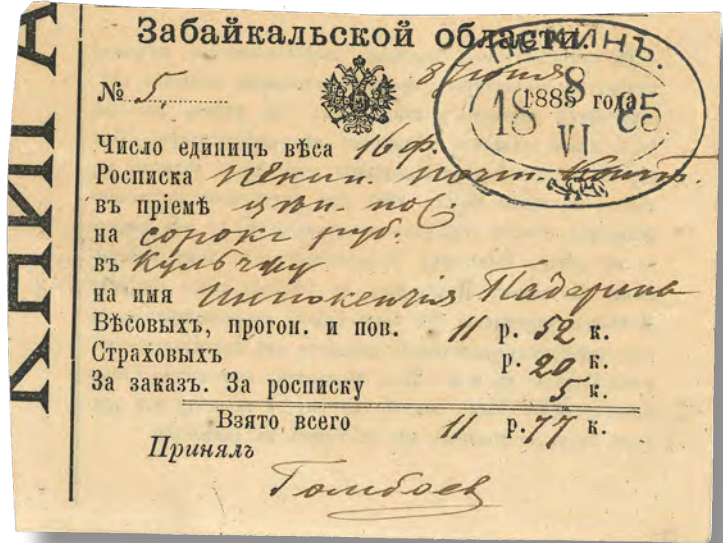 КНИГА
Забайкальской области.
ПЕКИНЪ.
8 Іюня
№ 5.
1885 года
8
18 85
VI
Число единицъ вѣса 16 ф.
Росписка Пекин. Почт. Конт.
въ пріемѣ цѣн. пос.
на сорокъ руб.
въ Кульчжу
на имя Иннокентія Падерина
Вѣсовыхъ, прогон. и пов. 11 р. 52 к.
Страховыхъ р. 20 к.
За заказъ. За росписку 5 к.
Взято всего 11 р. 77 к.
Принялъ
Гомбоев